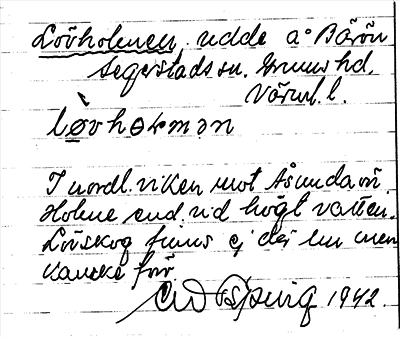 Lövholmen, udde å Bärön
Segerstads sn. Grums hd.
Värml. l.
løvhɵlmən
I nordl. viken mot Åsundaön
Holme end. vid högt vatten.
Lövskog finns ej där nu men
kanske förr
1942.